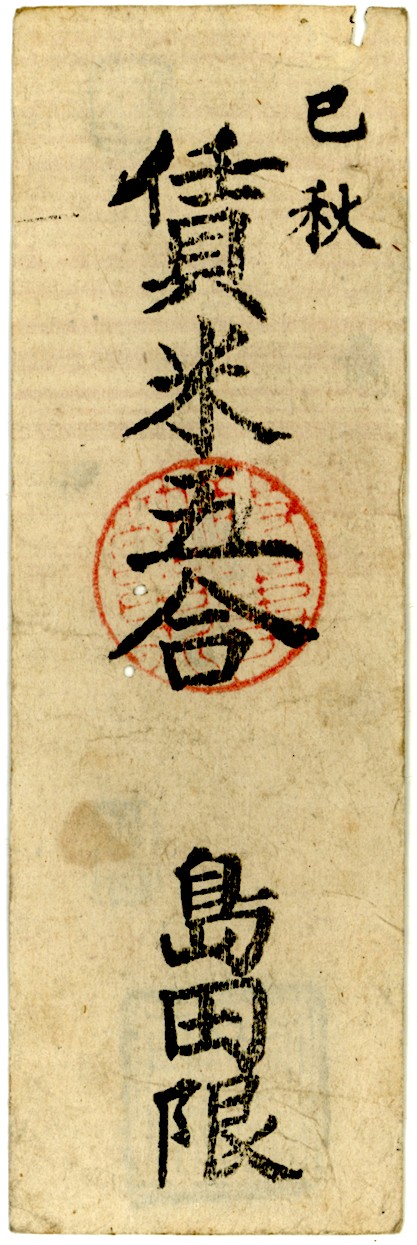 巳秋
賃米五合
島田限